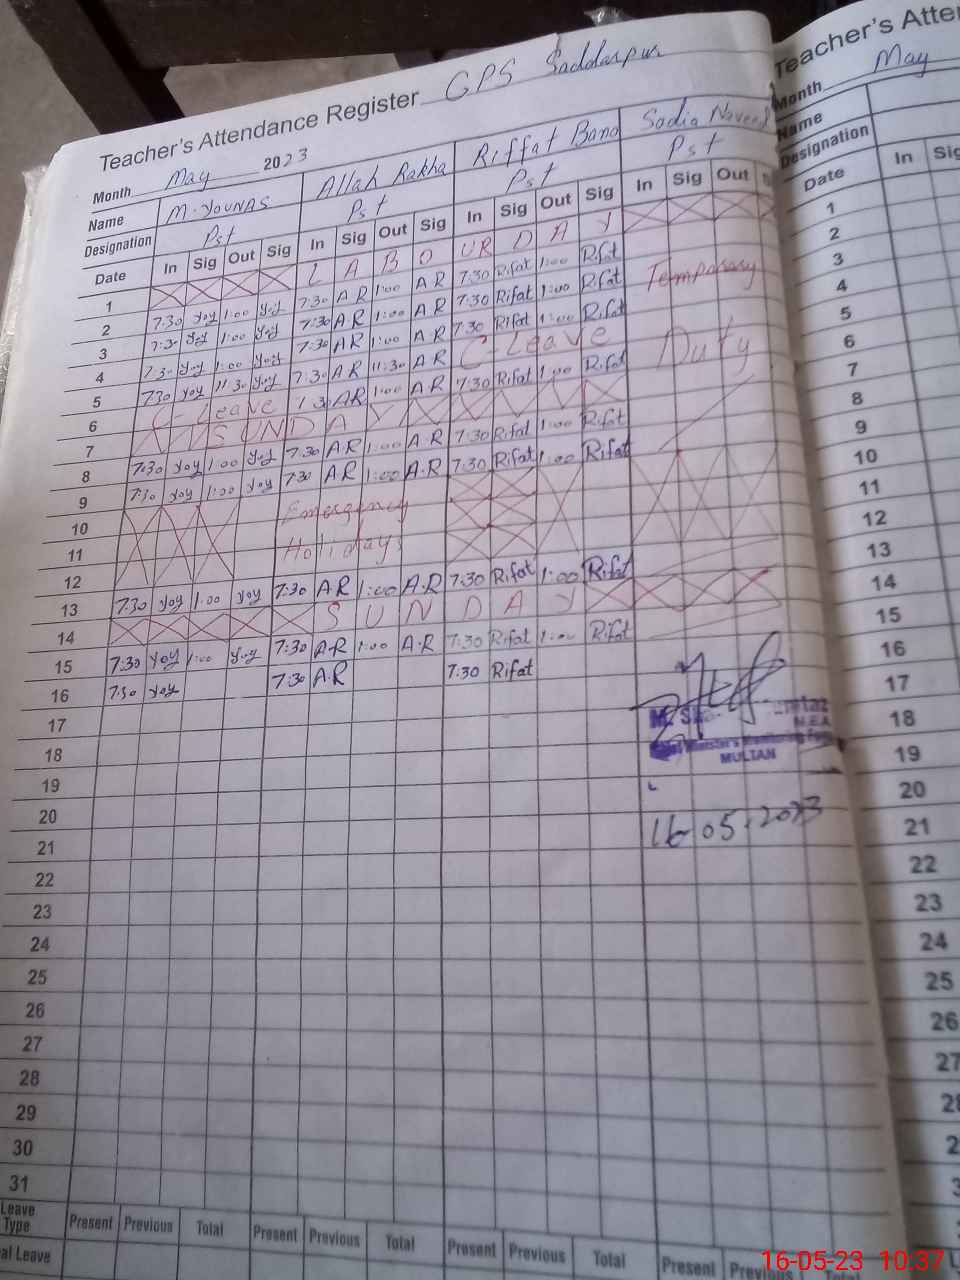 Teacher's Attendance Register GPS Saddarpur
Month May 2023
Name M. YOUNAS Allah Rakha Riffat Bano Sadia Naveed
Designation Pst Pst Pst Pst
Date In Sig Out Sig In Sig Out Sig In Sig Out Sig In Sig Out S
1 LABOUR DAY
2 7:30 yoy 1:00 yoy 7:30 AR 1:00 AR 7:30 Rifat 1:00 Rifat Temporary
3 7:30 yoy 1:00 yoy 7:30 AR 1:00 AR 7:30 Rifat 1:00 Rifat
4 7:30 yoy 1:00 yoy 7:30 AR 1:00 AR 7:30 Rifat 1:00 Rifat Duty
5 7:30 yoy 11:30 yoy 7:30 AR 11:30 AR C-Leave
6 C-Leave 7:30 AR 1:00 AR 7:30 Rifat 1:00 Rifat
7 SUNDAY
8 7:30 yoy 1:00 yoy 7:30 AR 1:00 A.R 7:30 Rifat 1:00 Rifat
9 7:30 yoy 1:00 yoy 7:30 AR 1:00 A.R 7:30 Rifat 1:00 Rifat
10 Emergency
11 Holidays
12
13 7:30 yoy 1:00 yoy 7:30 A.R 1:00 A.R 7:30 Rifat 1:00 Rifat
14 SUNDAY
15 7:30 yoy 1:00 yoy 7:30 A.R 1:00 A.R 7:30 Rifat 1:00 Rifat
16 7:30 yoy 7:30 A.R 7:30 Rifat
17
18
M.E.A
Minister's Monitoring
MULTAN
19
20
16-05-2023
21
22
23
24
25
26
27
28
29
30
31
Leave Type Present Previous Total Present Previous Total Present Previous Total Present Previous
al Leave
Teacher's Atte
Month May
Name
Designation
Date In Sig
1
2
3
4
5
6
7
8
9
10
11
12
13
14
15
16
17
18
19
20
21
22
23
24
25
26
27
16-05-23 10:37